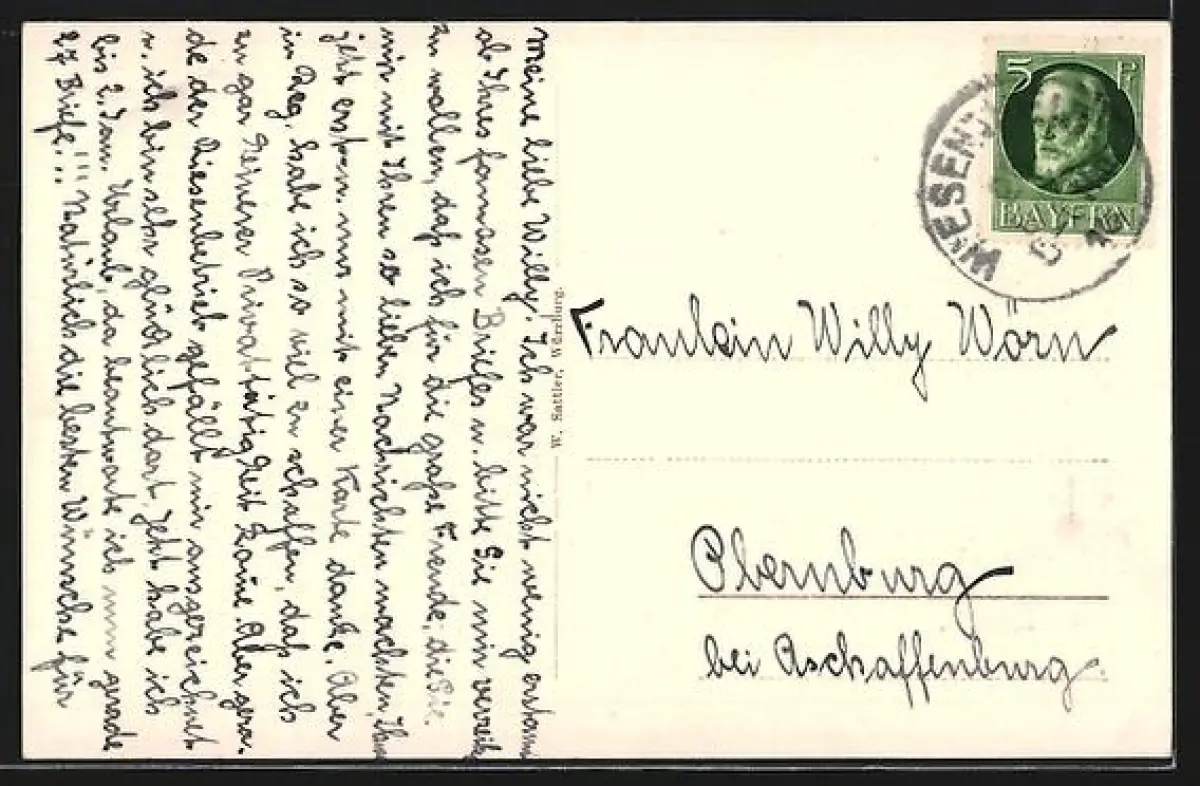 Meine liebe Willy! Ich war nicht wenig erstaunt
ob Ihres famosen Briefes u. bitte Sie mir verzeih.
zu wollen, daß ich für die große Freude, die Sie
mir mit Ihren so lieben Nachrichten machten, Ihn
jetzt erst u. nur mit einer Karte danke. Aber
in Reg. habe ich so viel zu schaffen, daß ich
zu gar keinerer Privattätigkeit komme. Aber gera-
de der Riesenbetrieb gefällt mir ausgezeichnet
u. ich bin sehr glücklich dort. Jetzt habe ich
bis 2. Jan. Urlaub, da beantworte ich nun gerade
27 Briefe!!! Natürlich die besten Wünsche für
W. Sattler, Würzburg.
5 Pf
BAYERN
WIESEN
Fraulein Willy Wörn
Obernburg
bei Aschaffenburg.